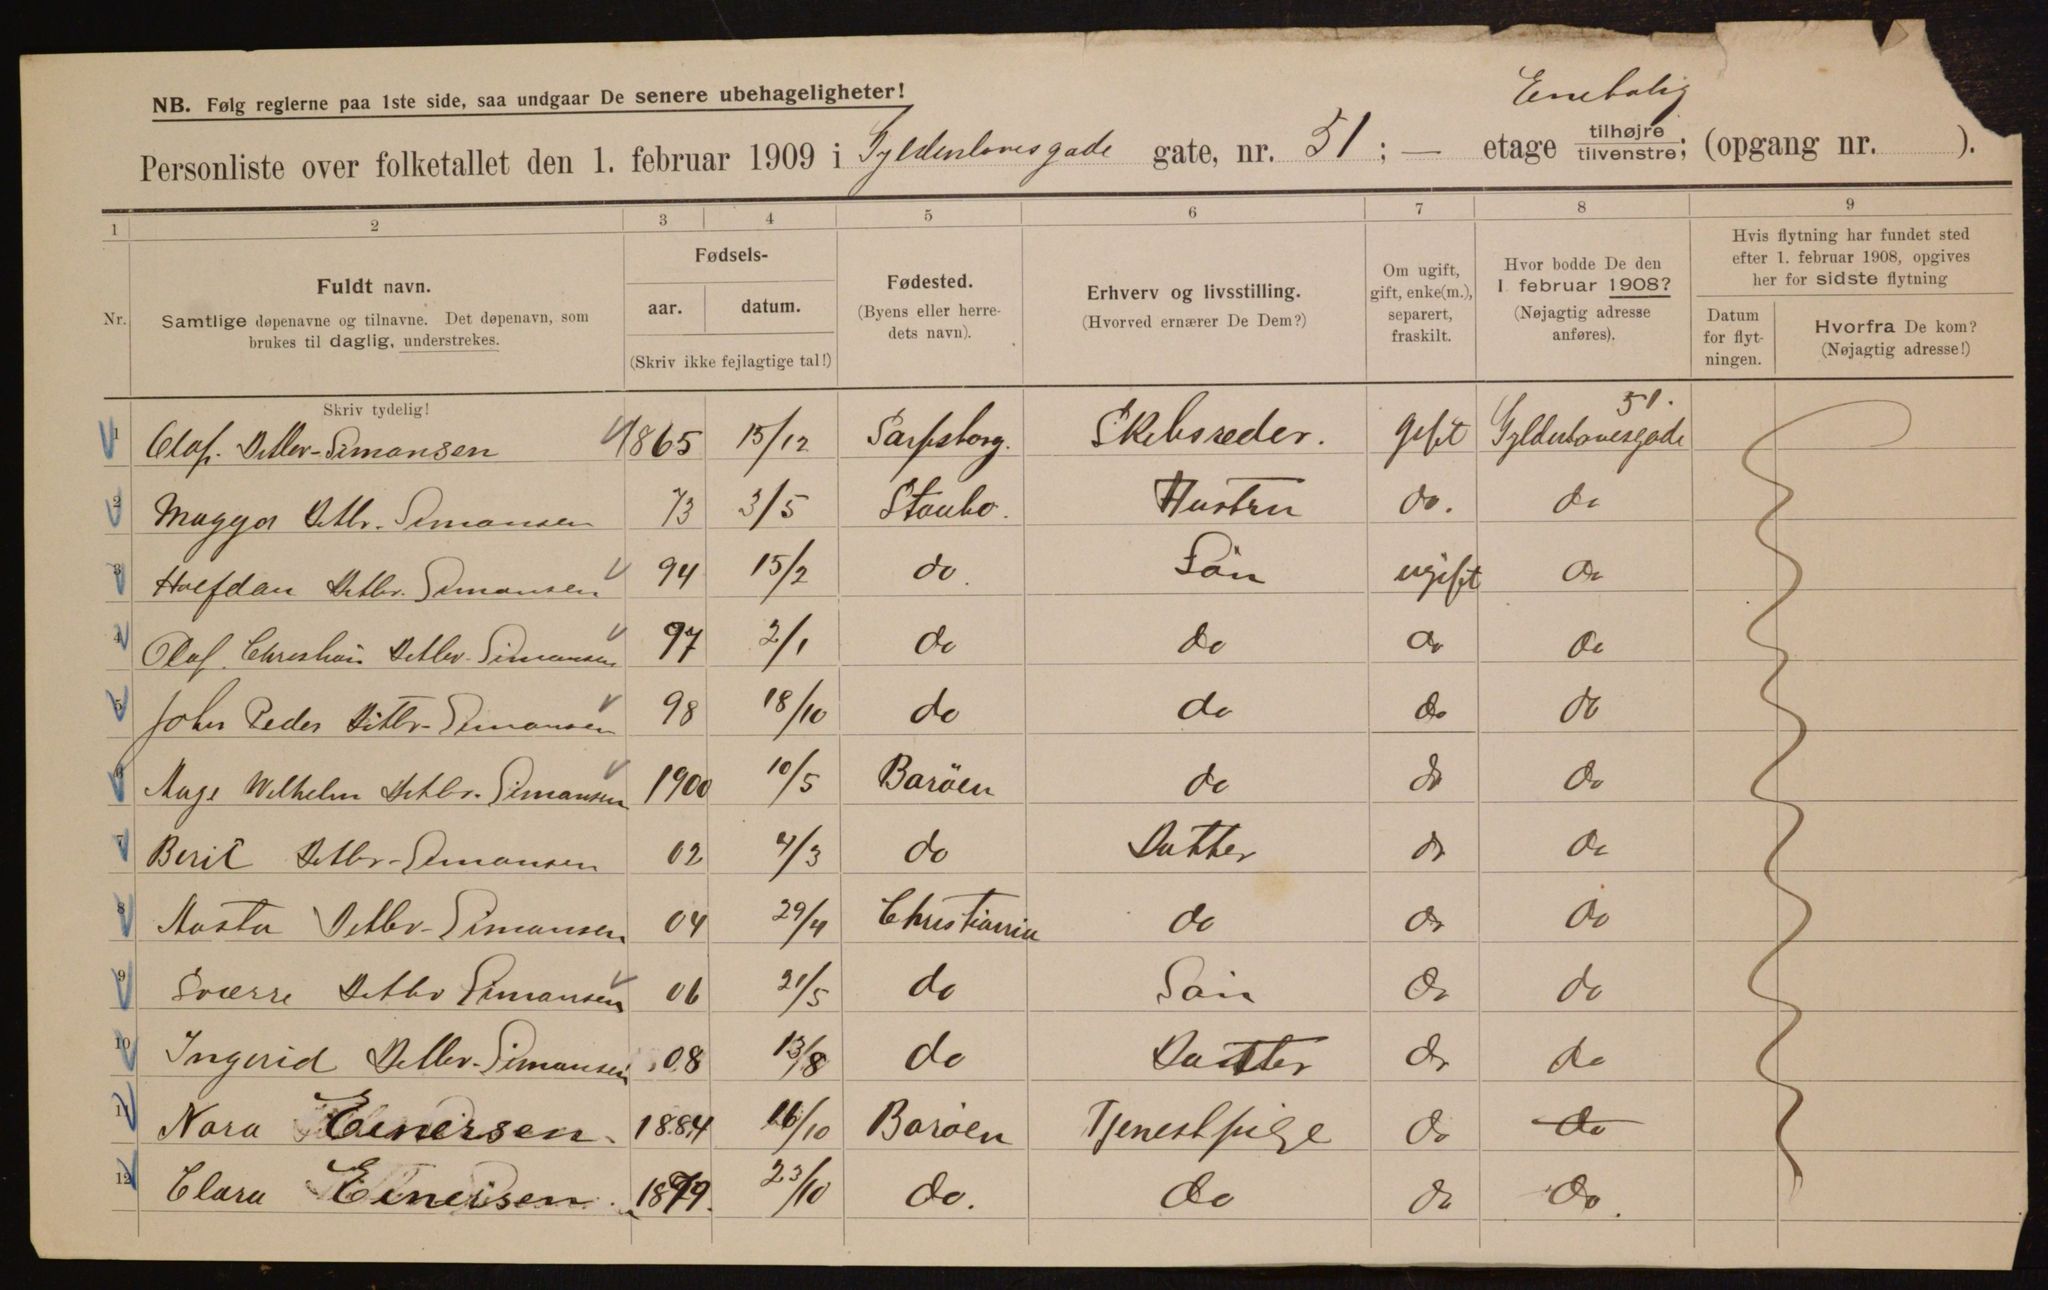 Enebolig
NB. Følg reglerne paa 1ste side, saa undgaar De senere ubehageligheter!
Personliste over folketallet den 1. februar 1909 i Gyldenlovesgade gate, nr. 51; — etage tilhøjre tilvenstre; (opgang nr. ).
1 2 3 4 5 6 7 8 9
Nr.
Fuldt navn.
Samtlige døpenavne og tilnavne. Det døpenavn, som
brukes til daglig, understrekes.
Skriv tydelig!
Fødsels-
aar. datum.
(Skriv ikke fejlagtige tal!)
Fødested.
(Byens eller herre-
dets navn).
Erhverv og livsstilling.
(Hvorved ernærer De Dem?)
Om ugift,
gift, enke(m.),
separert,
fraskilt.
Hvor bodde De den
1. februar 1908?
(Nøjagtig adresse
anføres).
Hvis flytning har fundet sted
efter 1. februar 1908, opgives
her for sidste flytning
Datum
for flyt-
ningen.
Hvorfra De kom?
(Nøjagtig adresse!)
1 Olaf. Ditlev-Simonsen 1865 15/12 Sarpsborg. Skibsreder. gift Gyldenlovesgade 51.
2 Magga Ditlv. Simonsen 73 3/5 Staubo. Hustru do. do
3 Halfdan Ditlv. Simonsen 94 15/2 do. Sön ugift do
4 Olaf. Christian Ditlev-Simonsen 97 2/1 do do do do
5 John Peder Ditlv-Simonsen 98 18/10 do do do do
6 Aage Wilhelm Ditlv.-Simonsen 1900 10/5 Boröen do do do
7 Berit Ditlv-Simonsen 02 4/3 do Datter do do
8 Aasta Ditlv-Simonsen 04 29/4 Christiania do do do
9 Sverre Ditlv Simonsen 06 21/5 do Sön do do
10 Ingerid Ditlev-Simonsen 08 13/8 do Datter do do
11 Nora Einersen. 1884 16/10 Boröen Tjenestpige do do
12 Clara Einersen. 1879. 23/10 do. do do do.